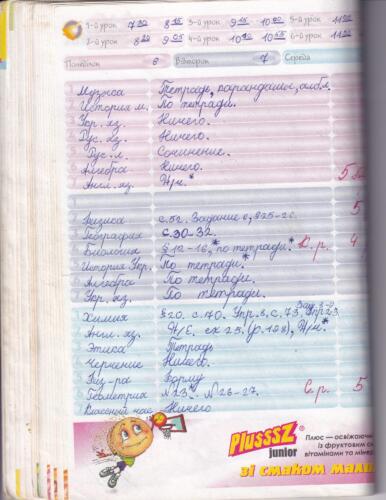 1-й урок 7 30 8 15 3-й урок 9 15 10 00 5-й урок 11
2-й урок 8 20 9 05 4-й урок 10 10 6-й урок 11
Понеділок 6 Вівторок 7 Середа
Музыка Тетрадь,
История м. По тетради.
Укр. яз. Ничего.
Рус. яз. Ничего.
Рус. л. Сочинение.
Алгебра Ничего.
Англ. яз. Н/и.* 5
Физика с.52. Задание 6, §25-26. 5
География с.30-32.
Биология §12-16,* по тетради.* 4
История Укр. По тетради.*
Алгебра По тетради.
Укр. яз. По тетради.
Химия §20. с.70. Упр.6, с.73
Англ. яз. Н/Е. ех 25 (р.108), Н/и.*
Этика Тетрадь
Черчение Ничего.
Физ-ра Форму
Геометрия №23*. №26-27. С.р. 5
Класный час Ничего
Plusssz junior
Плюс — освіжаючи
із фруктовим см
вітамінами та мінер
зі смаком мали